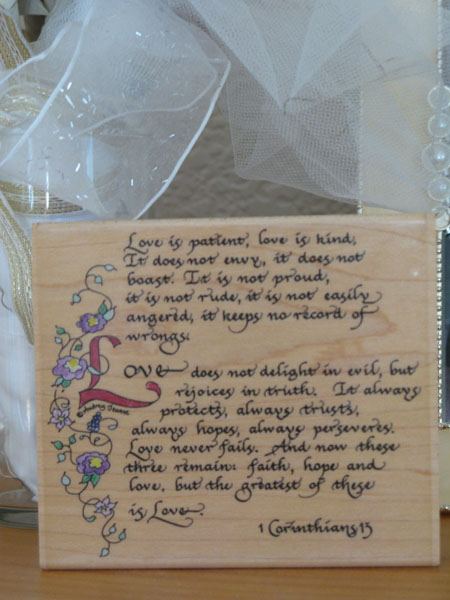 Love is patient, love is kind,
It does not envy, it does not
boast. It is not proud,
it is not rude, it is not easily
angered, it keeps no record of
wrongs.
Love does not delight in evil, but
rejoices in truth. It always
protects, always trusts,
©Audrey Jeanne
always hopes, always perseveres.
Love never fails. And now these
three remain: faith, hope and
love, but the greatest of these
is Love.
1 Corinthians 13